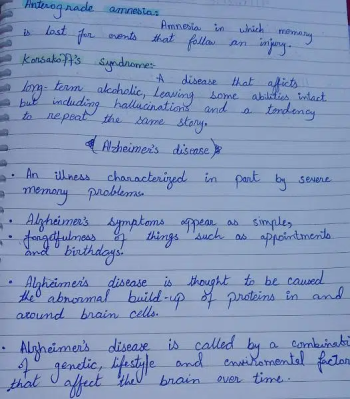 Anterograde amnesia:
Amnesia in which memory
is lost for events that follow an injury.
Korsakoff's syndrome:
A disease that afficts
long-term alcoholic, leaving some abilities intact
but including hallucinations and a tendency
to repeat the same story.
(Alzheimer's disease)
• An illness characterized in part by severe
memory problems.
• Alzheimer's symptoms appear as simple,
forgdfulness of things such as appointments
and birthdays.
• Alzheimer's disease is thought to be caused
the abnormal build-up of proteins in and
around brain cells.
• Alzheimer's disease is called by a combinati
of genetic, lifestyle and enviromental factor
that affect the brain over time.